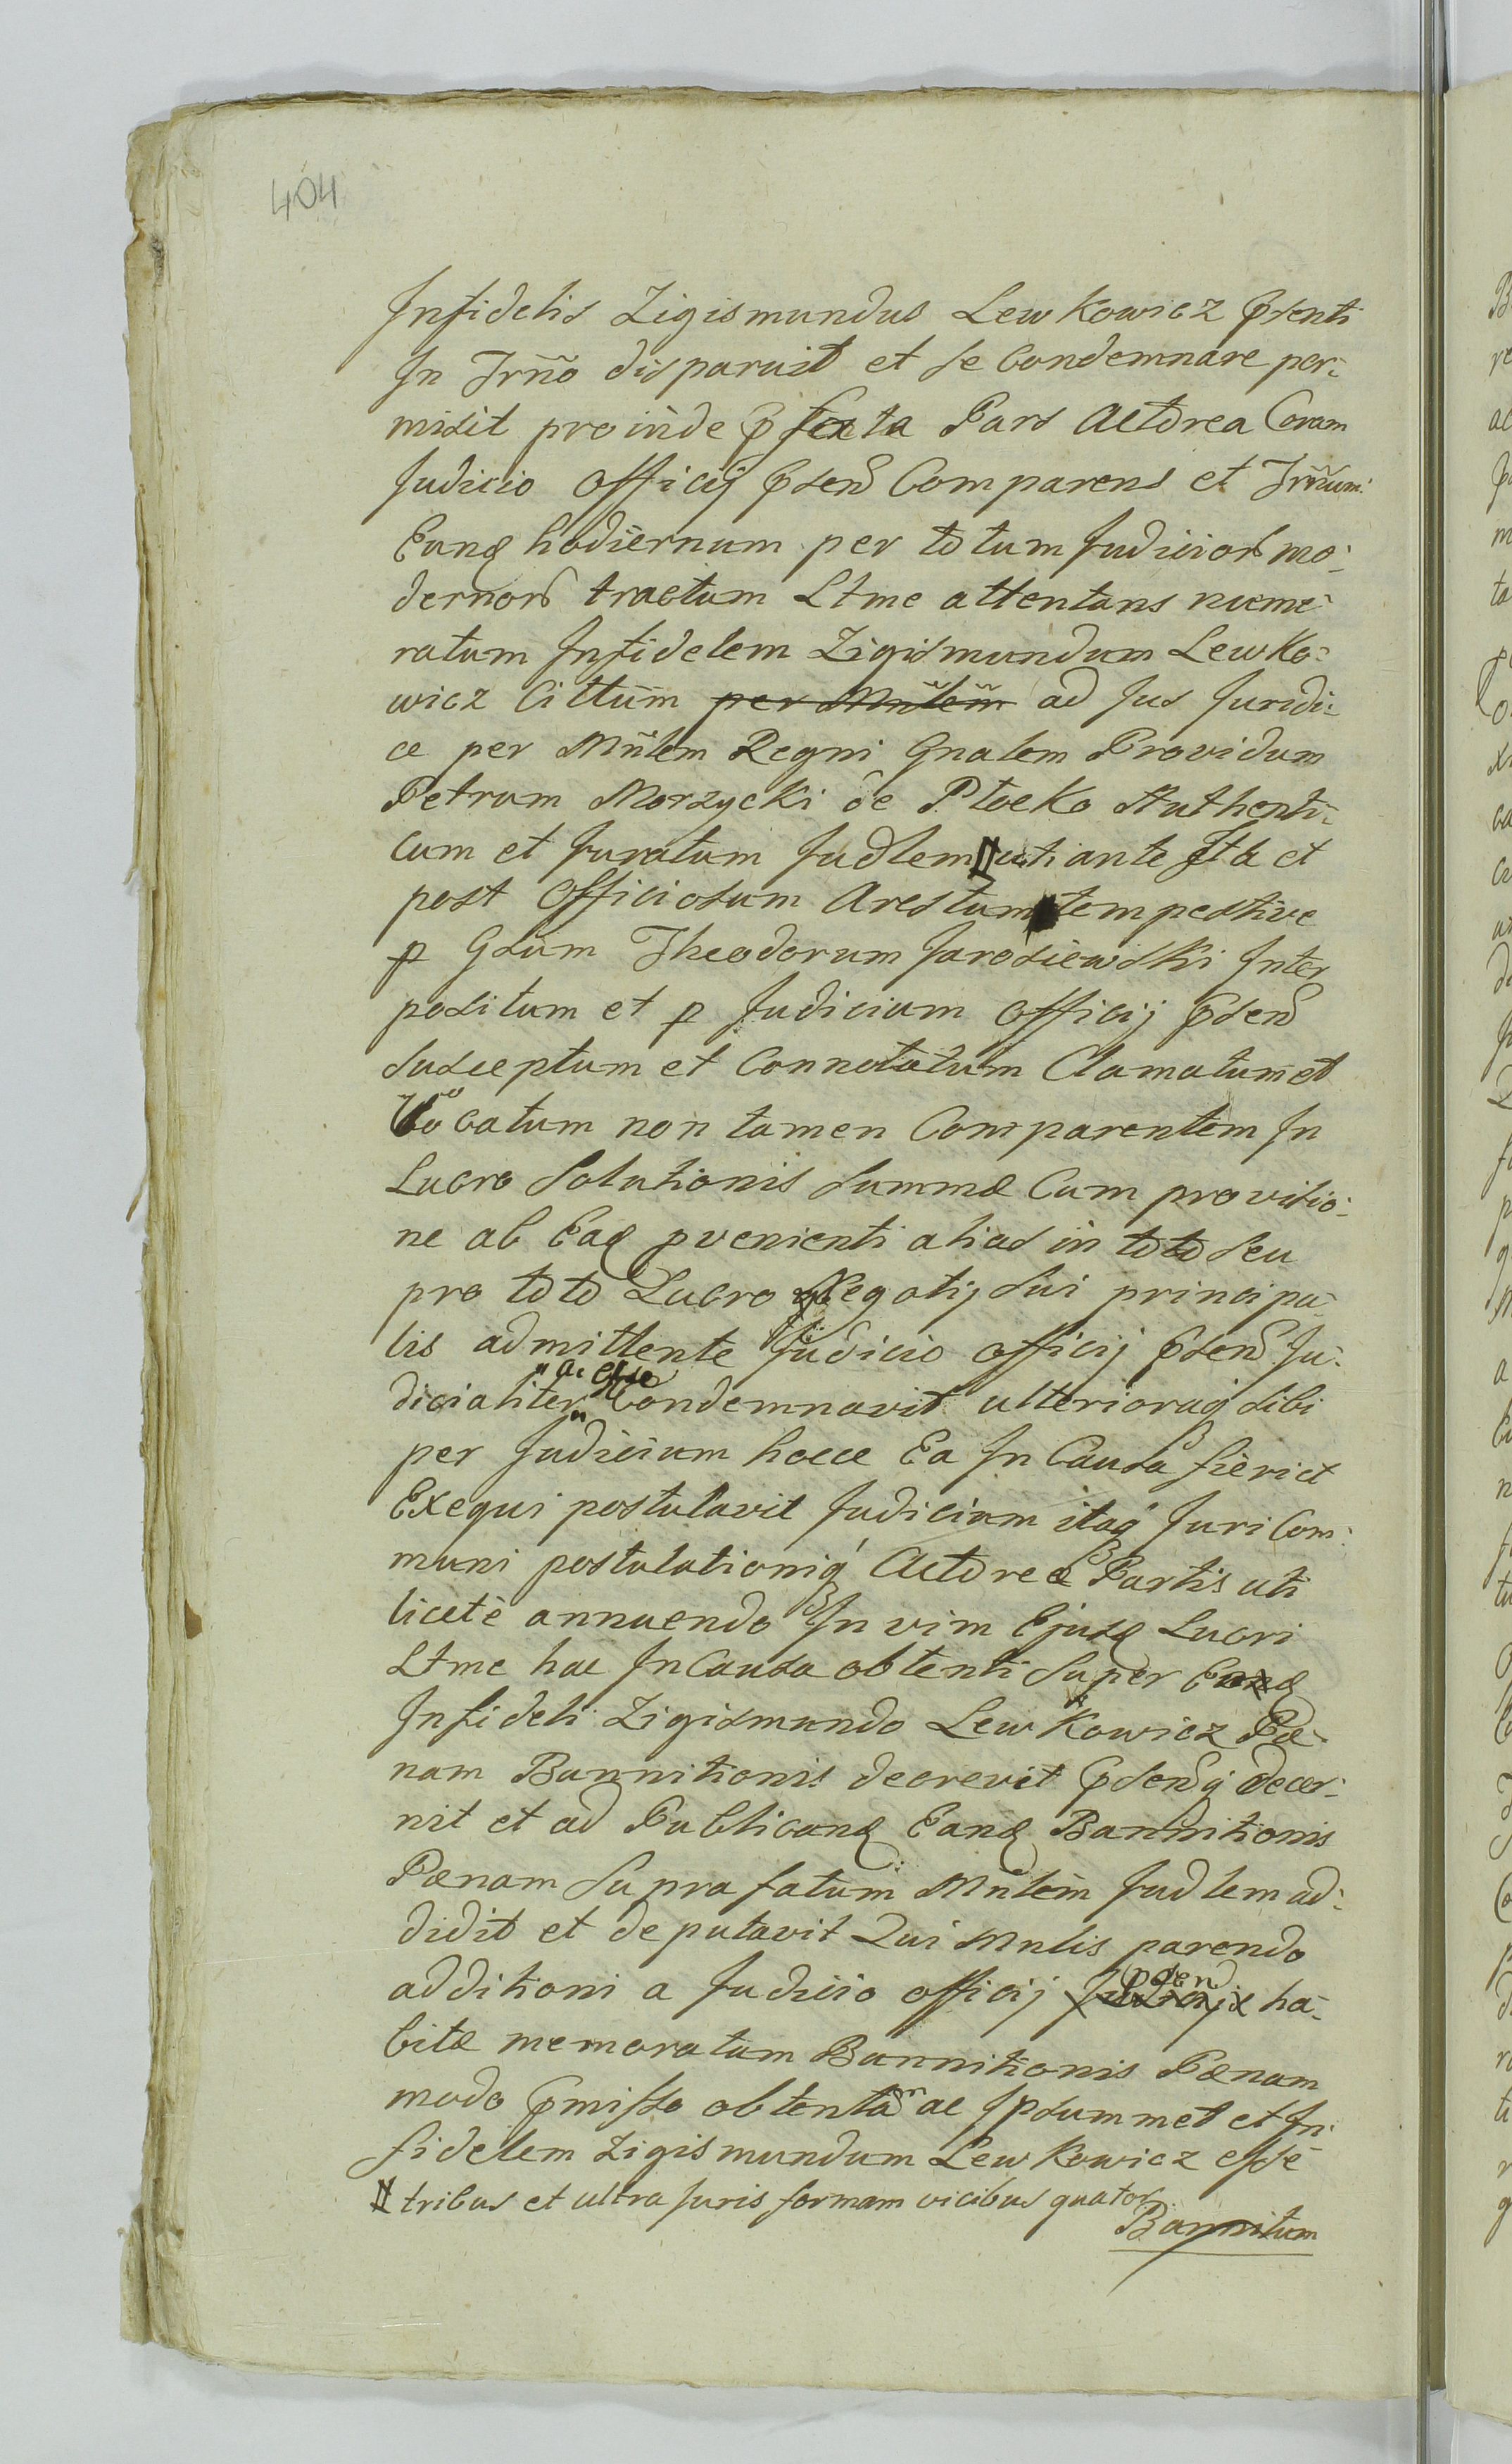 404
Infidelis Zigismundus Lewkowicz Psenti
In Trño disparuit et se Condemnare per-
misit proinde Pfata Pars Actorea Coram
Judicio Officij Psen Comparens et Trñum
Eunq hodiernum per totum Judicior mo-
dernor tractum Ltme attentans nume-
ratum Infidelem Zigismundum Lewko-
wicz Cittum per Mñlem ad Jus Juridi-
ce per Mñlem Regni Gnalem Providum
Petrum Morzycki de Plocko Authenti-
cum et Juratum Judlem uti ante Ita et
post Officiosum Arestum tempestive
p Gsum Theodorum Jarosiewski Inter
positum et p Judicium Officij Psen
Susceptum et Connotatum Clamatum et
Vocatum non tamen Comparentem In
Lucro Solutionis Summæ Cum provisio-
ne ab Eaq pvenienti alias in toto seu
pro toto Lucro Negotij sui principa-
lis admittente Judicio Officij Psen Ju-
dicialiter Condemnavit ulterioraq sibi
ac esse
per Judicium hocce Ea In Causa fieri et
Exequi postulavit Judicium itaq Juri Com-
muni postulationiq Actoreæ Partis uti
licitè annuendo In vim Ejusq Lucri
Ltme hac In Causa obtenti Super
Infideli Zigismundo Lewkowicz Pæ-
nam Bannitionis decrevit Psenq decer-
nit et ad Publicanq Eanq Bannitionis
Pænam Supra fatum Mñlem Judlem ad-
didit et deputavit Qui Mnlis parendo
additioni a Judicio Officij Psen ha-
bitæ memoratam Bannitionis Pænam
modo Pmisso obtentam ac Ipsummet et In-
fidelem Zigismundum Lewkowicz esse
tribus et ultra Juris formam vicibus quator
Bannitum